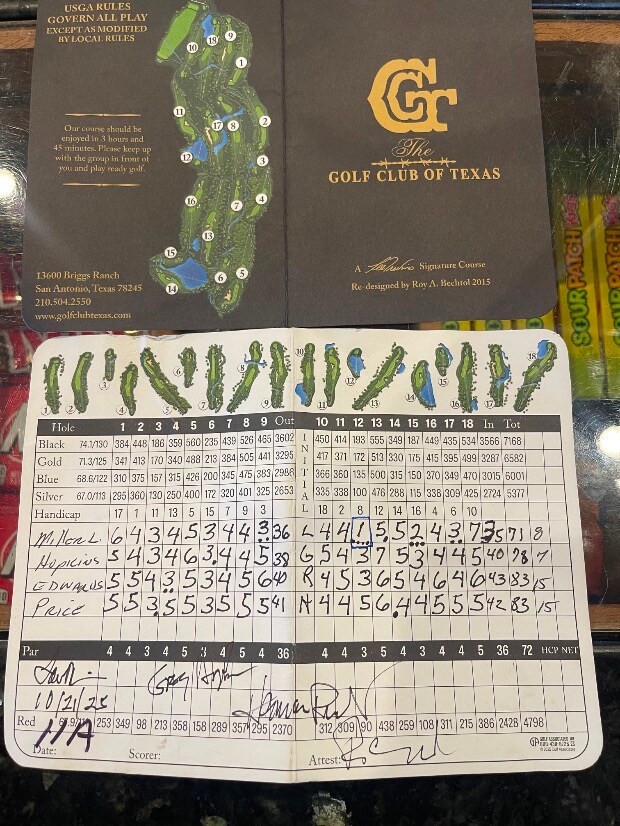 USGA RULES
GOVERN ALL PLAY
EXCEPT AS MODIFIED
BY LOCAL RULES
10 18 9
1
11
17 8 2
12
3
16 7 4
13
15
14 6 5
Our course should be
enjoyed in 3 hours and
45 minutes. Please keep
up with the group in front of
you and play ready golf.
13600 Briggs Ranch
San Antonio, Texas 78245
210.504.2550
www.golfclubtexas.com
GCT
The
GOLF CLUB OF TEXAS
A Signature Course
Re-designed by Roy A. Bechtol 2015
SOUR PATCH
SOUR PATCH
1 2 3 4 5 6 7 8 9 10 11 12 13 14 15 16 17 18
Hole 1 2 3 4 5 6 7 8 9 Out INITIAL 10 11 12 13 14 15 16 17 18 In Tot
Black 74.1/130 384 448 186 359 560 235 439 526 465 3602 450 414 193 555 349 187 449 435 534 3566 7168
Gold 71.3/125 341 413 170 340 488 213 384 505 441 3295 417 371 172 513 330 175 415 395 499 3287 6582
Blue 68.6/122 310 375 157 315 426 200 345 475 383 2988 366 360 135 500 315 150 370 349 470 3015 6001
Silver 67.0/113 295 360 130 250 400 172 320 401 325 2653 335 338 100 476 288 115 338 309 425 2724 5377
Handicap 11 1 13 17 5 15 7 9 3 18 2 8 12 14 16 4 6 10
Miller L 6 4 3 4 5 3 4 4 3 36 L 4 4 1 5 5 2 4 3 7 35 71 8
Hopkins 5 4 3 4 6 3 4 4 5 38 G 5 4 3 7 5 3 4 4 5 40 78 7
EDWARDS 5 5 4 3 5 3 4 5 6 40 R 4 5 3 6 5 4 6 4 6 43 83 15
PRICE 5 5 3 5 5 3 5 5 5 41 H 4 4 5 6 4 4 5 5 5 42 83 15
Par 4 4 3 4 5 3 4 5 4 36 4 4 3 5 4 3 4 4 5 36 72 HCP NET
10/21/25
Red 253 349 98 213 358 158 289 357 295 2370 312 309 90 438 259 108 311 215 386 2428 4798
HA
Date: Scorer: Attest: